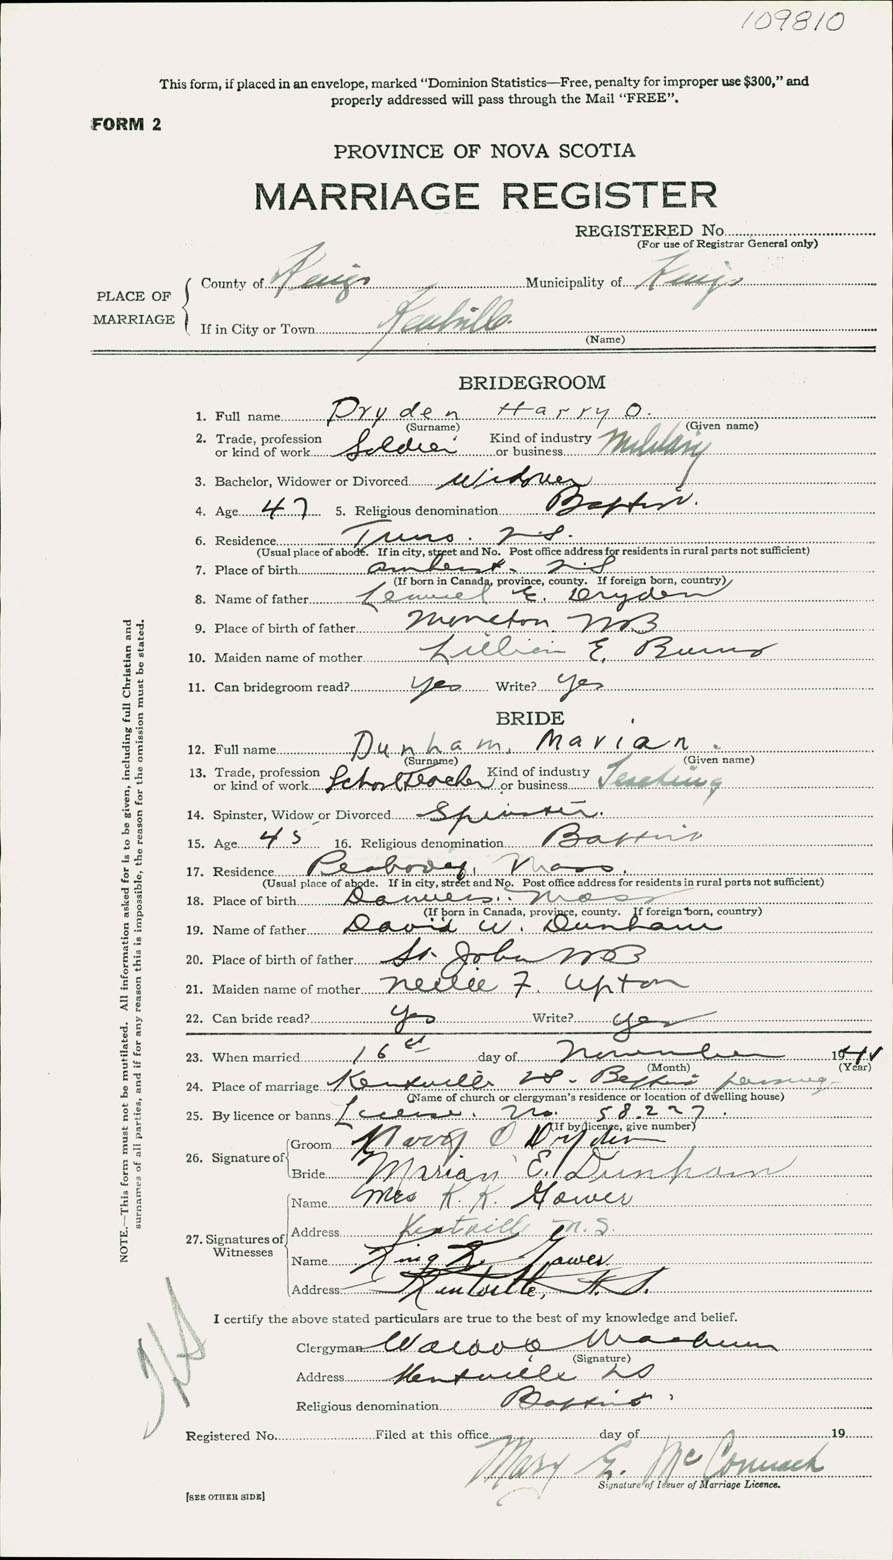 109810
This form, if placed in an envelope, marked “Dominion Statistics—Free, penalty for improper use $300,” and
properly addressed will pass through the Mail “FREE”.
FORM 2
PROVINCE OF NOVA SCOTIA
MARRIAGE REGISTER
REGISTERED No.
(For use of Registrar General only)
PLACE OF MARRIAGE
County of Kings Municipality of Kings
If in City or Town Kentville
(Name)
BRIDEGROOM
1. Full name Dryden Harry O.
(Surname) (Given name)
2. Trade, profession or kind of work Soldier Kind of industry or business Military
3. Bachelor, Widower or Divorced Widower
4. Age 47 5. Religious denomination Baptist.
6. Residence Truro. N.S.
(Usual place of abode. If in city, street and No. Post office address for residents in rural parts not sufficient)
7. Place of birth Amherst. N.S
(If born in Canada, province, county. If foreign born, country)
8. Name of father Lemuel E. Dryden
9. Place of birth of father Moncton NB
10. Maiden name of mother Lillian E. Burns
11. Can bridegroom read? yes Write? yes
BRIDE
12. Full name Dunham, Marian.
(Surname) (Given name)
13. Trade, profession or kind of work School Teacher Kind of industry or business Teaching
14. Spinster, Widow or Divorced Spinster.
15. Age 45 16. Religious denomination Baptist
17. Residence Peabody, Mass.
(Usual place of abode. If in city, street and No. Post office address for residents in rural parts not sufficient)
18. Place of birth Danvers. Mass
(If born in Canada, province, county. If foreign born, country)
19. Name of father David W. Dunham
20. Place of birth of father St. John NB
21. Maiden name of mother Nellie F. Upton
22. Can bride read? yes Write? yes
23. When married 16 day of November 1941
(Month) (Year)
24. Place of marriage Kentville NS. Baptist parsonage
(Name of church or clergyman's residence or location of dwelling house)
25. By licence or banns License. No. 58227.
(If by licence, give number)
26. Signature of
Groom Harry O Dryden
Bride Marian E. Dunham
27. Signatures of Witnesses
Name Mrs K. K. Gower
Address Kentville N.S.
Name King Gower
Address Kentville, N.S.
I certify the above stated particulars are true to the best of my knowledge and belief.
Clergyman
(Signature)
Address Kentville NS
Religious denomination Baptist
Registered No. Filed at this office day of 19
Mary E. McCormack
Signature of Issuer of Marriage Licence.
[SEE OTHER SIDE]
NOTE.—This form must not be mutilated. All information asked for is to be given, including full Christian and
surnames of all parties, and if for any reason this is impossible, the reason for the omission must be stated.